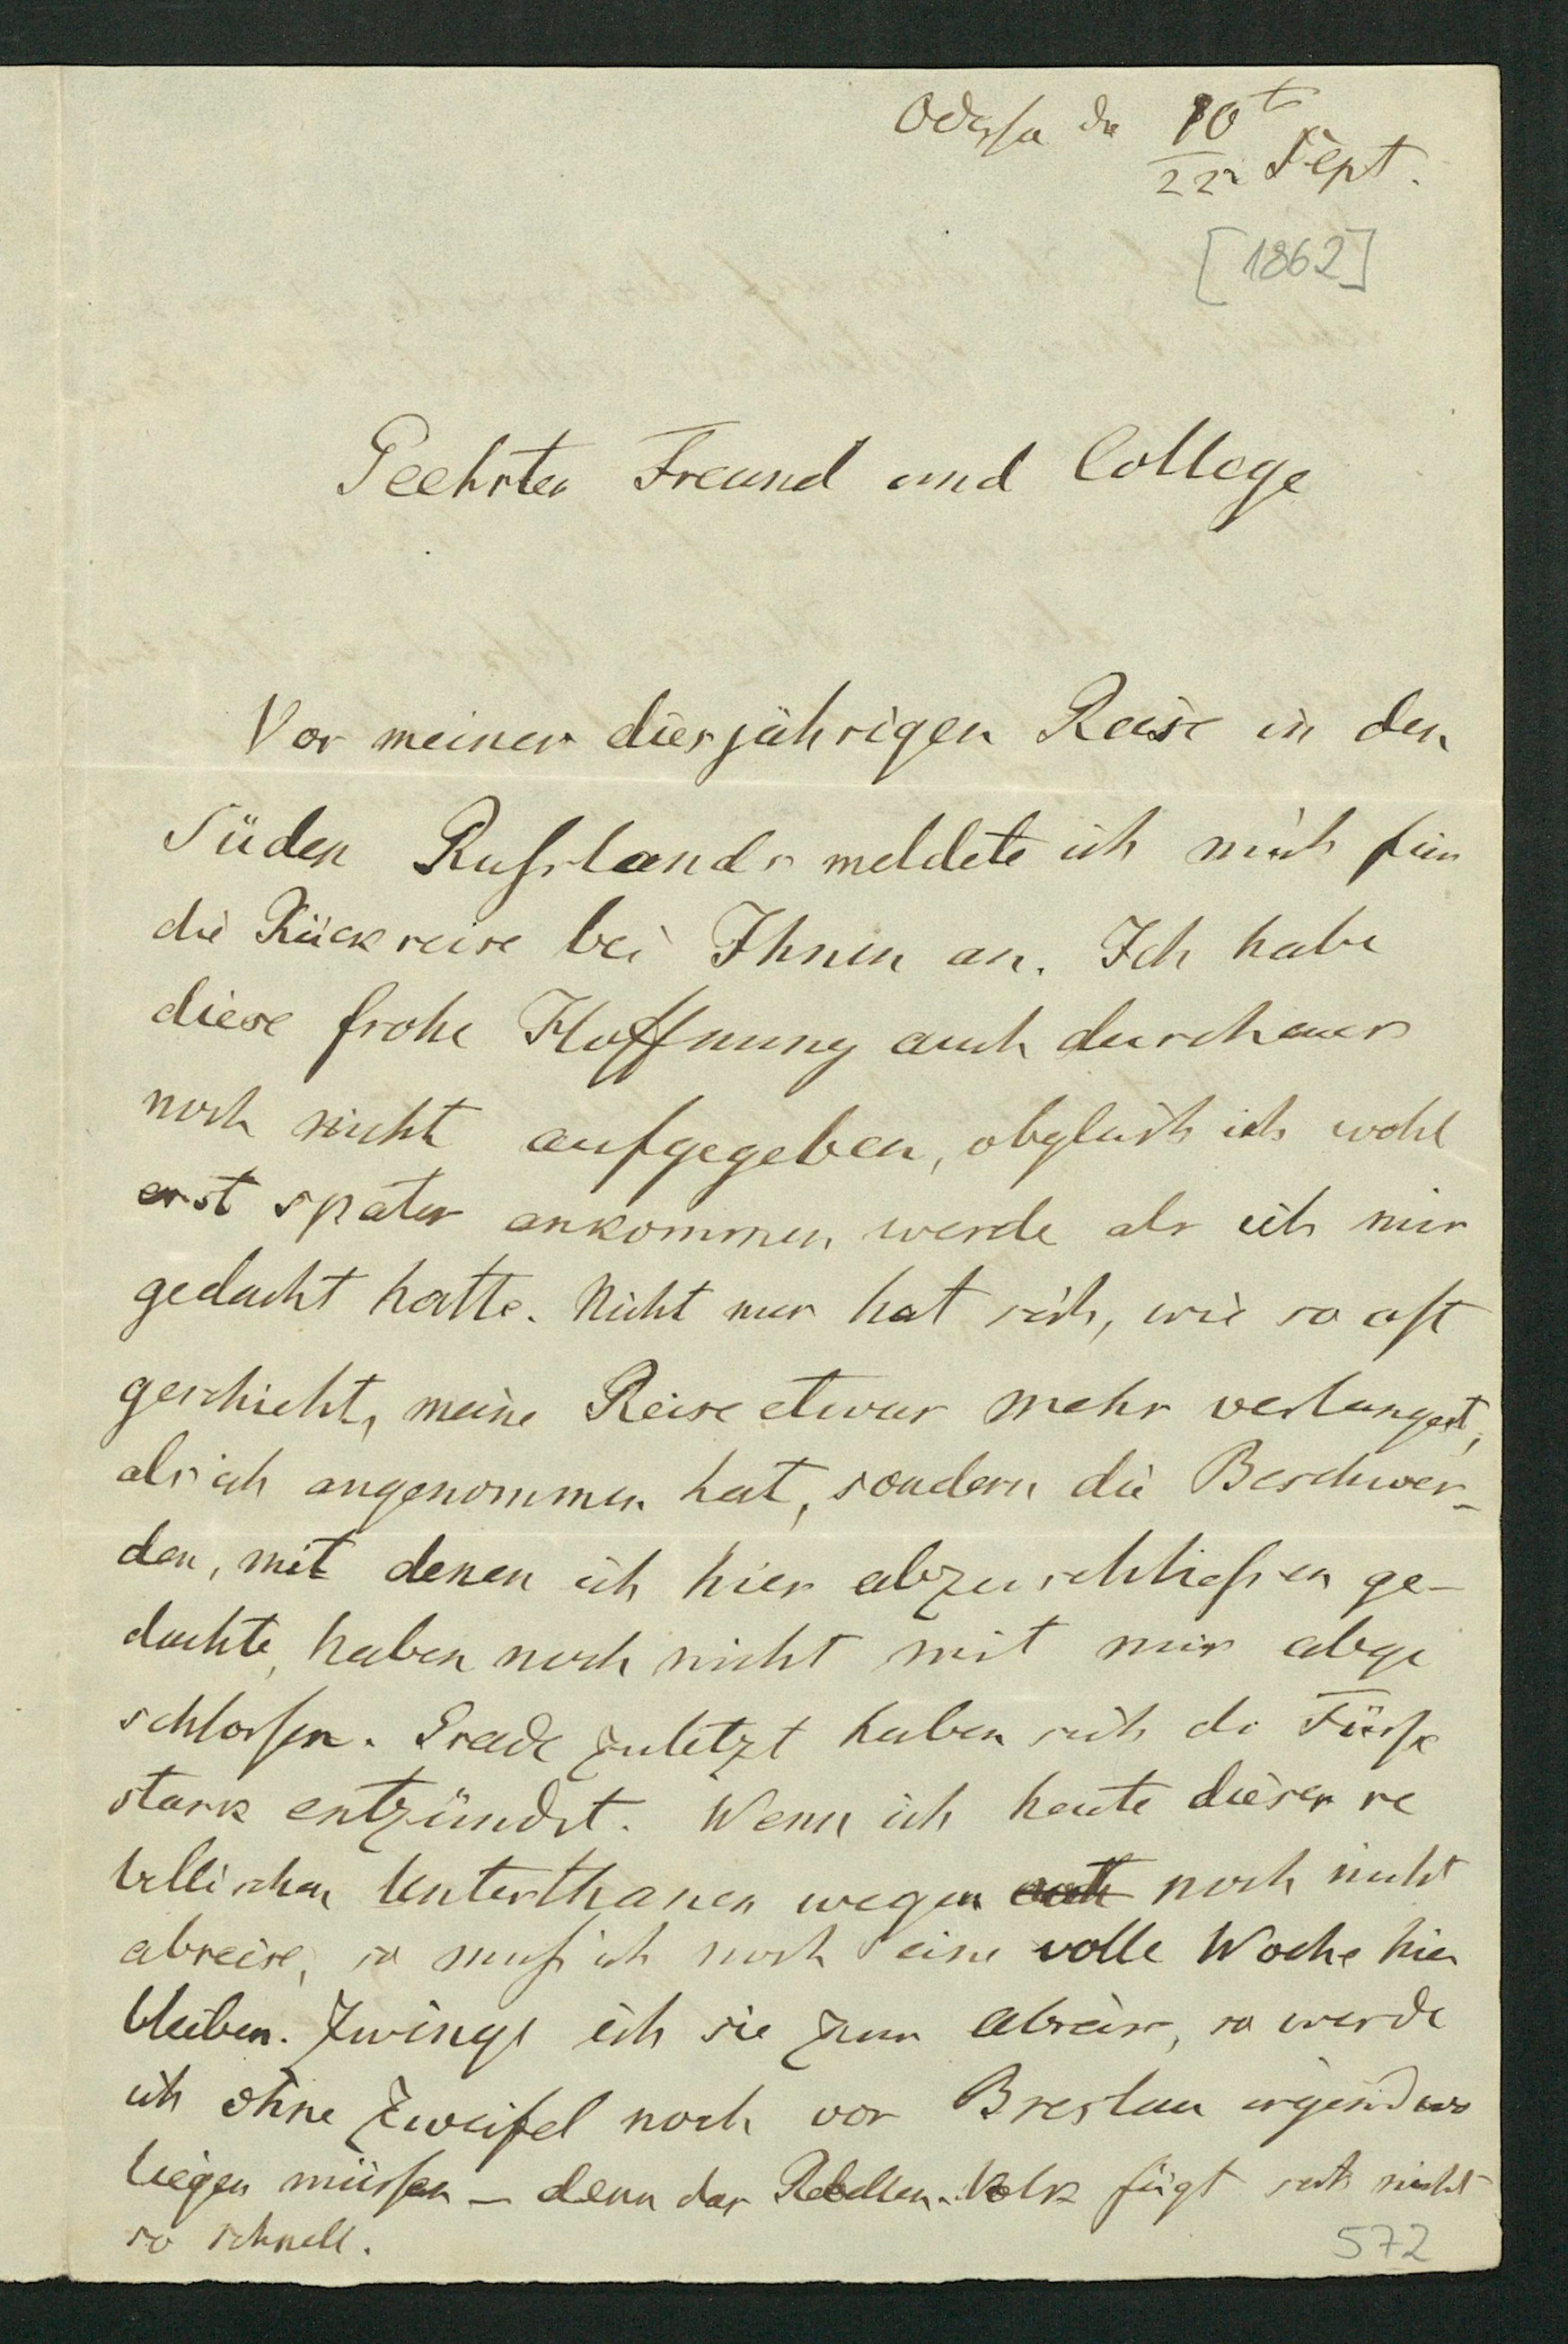 Odessa den 10ten
22 Sept.
[1862]
Geehrter Freund und College
Vor meiner diesjährigen Reise in den
Süden Rußlands meldete ich mich für
die Rückreise bei Ihnen an. Ich habe
diese frohe Hoffnung auch durchaus
noch nicht aufgegeben, obgleich ich wohl
erst später ankommen werde als ich mir
gedacht hatte. Nicht nur hat sich, wie so oft
geschieht, meine Reise etwas mehr verlangert,
als ich angenommen hat, sondern die Beschwer-
den, mit denen ich hier abzuschließen ge-
dachte, haben noch nicht mit mir abge
schlossen. Grade zuletzt haben sich die Füße
stark entzündet. Wenn ich heute dieser re
bellischen Unterthanen wegen noch nicht
abreise, so muß ich noch eine volle Woche hier
bleiben. Zwinge ich sie zur abreise, so werde
ich ohne Zweifel noch vor Breslau irgendwo
liegen müssen – denn das Rebellen-Volk fügt sich nicht
so schnell.
572